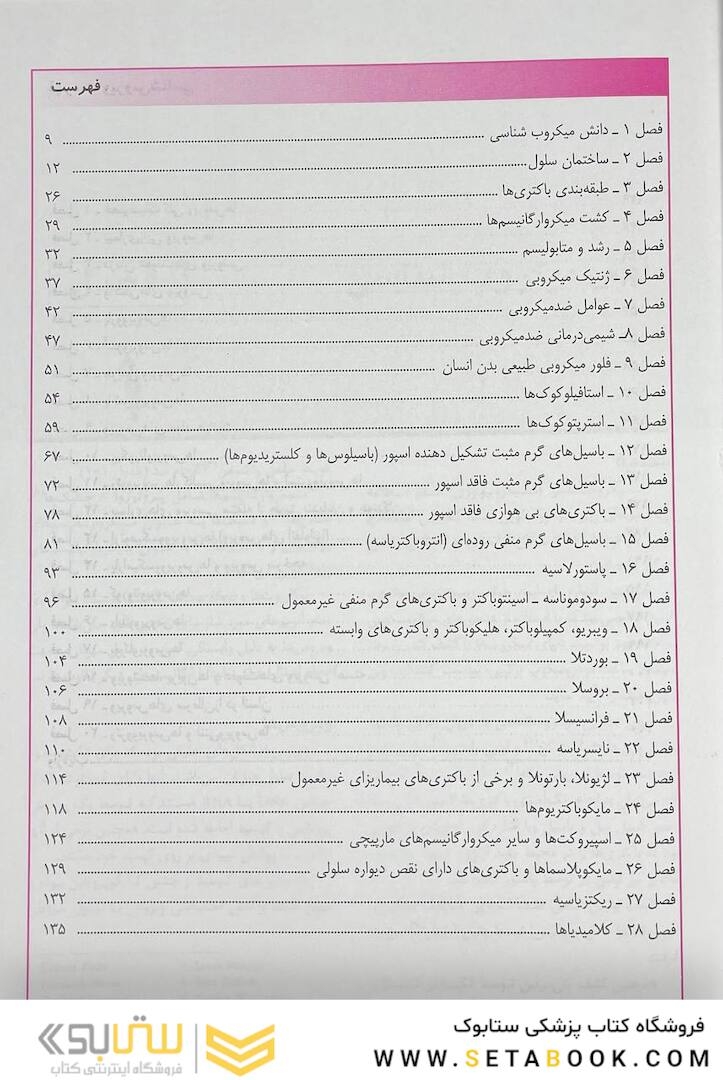 فهرست
فصل ۱ ـ دانش میکروب شناسی ........ ۹
فصل ۲ ـ ساختمان سلول ........ ۱۲
فصل ۳ ـ طبقه‌بندی باکتری‌ها ........ ۲۶
فصل ۴ ـ کشت میکروارگانیسم‌ها ........ ۲۹
فصل ۵ ـ رشد و متابولیسم ........ ۳۲
فصل ۶ ـ ژنتیک میکروبی ........ ۳۷
فصل ۷ ـ عوامل ضدمیکروبی ........ ۴۲
فصل ۸ـ شیمی‌درمانی ضدمیکروبی ........ ۴۷
فصل ۹ ـ فلور میکروبی طبیعی بدن انسان ........ ۵۱
فصل ۱۰ ـ استافیلوکوک‌ها ........ ۵۴
فصل ۱۱ ـ استرپتوکوک‌ها ........ ۵۹
فصل ۱۲ ـ باسیل‌های گرم مثبت تشکیل دهنده اسپور (باسیلوس‌ها و کلستریدیوم‌ها) ........ ۶۷
فصل ۱۳ ـ باسیل‌های گرم مثبت فاقد اسپور ........ ۷۲
فصل ۱۴ ـ باکتری‌های بی هوازی فاقد اسپور ........ ۷۸
فصل ۱۵ ـ باسیل‌های گرم منفی روده‌ای (انتروباکتریاسه) ........ ۸۱
فصل ۱۶ ـ پاستورلاسیه ........ ۹۳
فصل ۱۷ ـ سودوموناسه ـ اسینتوباکتر و باکتری‌های گرم منفی غیرمعمول ........ ۹۶
فصل ۱۸ ـ ویبریو، کمپیلوباکتر، هلیکوباکتر و باکتری‌های وابسته ........ ۱۰۰
فصل ۱۹ ـ بوردتلا ........ ۱۰۴
فصل ۲۰ ـ بروسلا ........ ۱۰۶
فصل ۲۱ ـ فرانسیسلا ........ ۱۰۸
فصل ۲۲ ـ نایسریاسه ........ ۱۱۰
فصل ۲۳ ـ لژیونلا، بارتونلا و برخی از باکتری‌های بیماریزای غیرمعمول ........ ۱۱۴
فصل ۲۴ ـ مایکوباکتریوم‌ها ........ ۱۱۸
فصل ۲۵ ـ اسپیروکت‌ها و سایر میکروارگانیسم‌های مارپیچی ........ ۱۲۴
فصل ۲۶ ـ مایکوپلاسماها و باکتری‌های دارای نقص دیواره سلولی ........ ۱۲۹
فصل ۲۷ ـ ریکتزیاسیه ........ ۱۳۲
فصل ۲۸ ـ کلامیدیاها ........ ۱۳۵
فروشگاه کتاب پزشکی ستابوک
WWW.SETABOOK.COM
ستابوک
فروشگاه اینترنتی کتاب